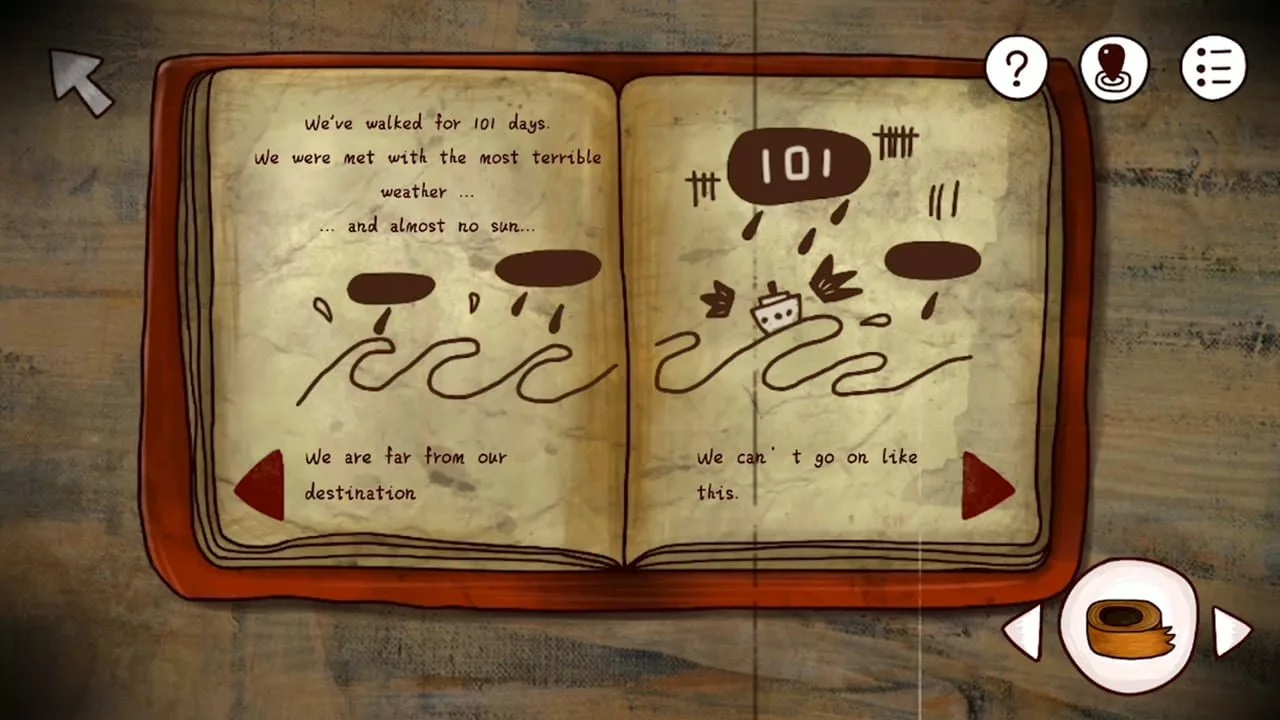 We've walked for 101 days.
We were met with the most terrible
weather ...
... and almost no sun...
We are far from our
destination
101
We can't go on like
this.
?